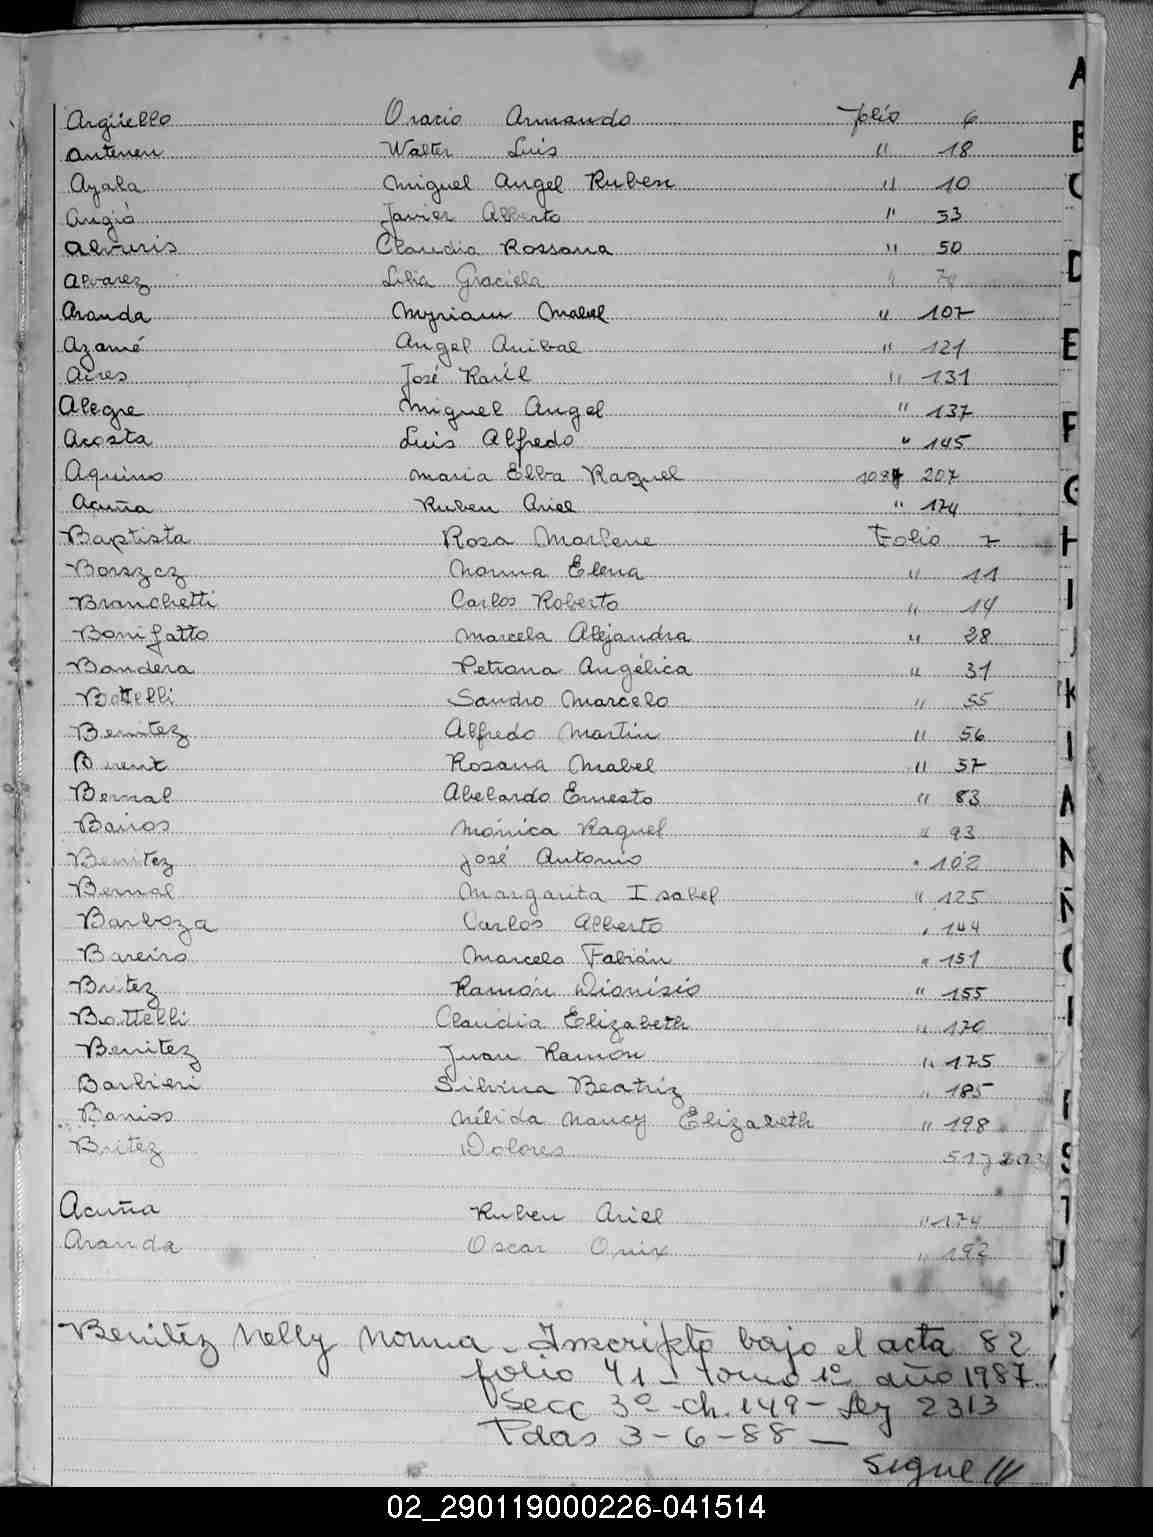 Argüello Oracio Armando folio 6
Antenen Walter Luis " 18
Ayala Miguel Angel Ruben " 10
Angió Javier Alberto " 33
Claudia Rossana " 50
Alvarez Lilia Graciela "
Aranda Myriam Mabel " 107
Azamé Angel Anibal " 121
Aires José Raúl " 131
Alegre Miguel Angel " 137
Acosta Luis Alfredo " 145
Aquino Maria Elba Raquel 207
Acuña Ruben Ariel " 174
Baptista Rosa Marlene Folio 7
Borszcz Norma Elena " 11
Branchetti Carlos Roberto " 14
Bonifatto Marcela Alejandra " 28
Bandera Petrona Angélica " 31
Bottelli Sandro Marcelo " 55
Benitez Alfredo Martin " 56
Rosana Mabel " 57
Bernal Abelardo Ernesto " 83
Bairos Mónica Raquel " 93
Benitez José Antonio " 102
Bernal Margarita Isabel " 125
Barboza Carlos Alberto " 144
Bareiro Marcelo Fabián " 151
Britez Ramón Dionisio " 155
Bottelli Claudia Elizabeth " 170
Benitez Juan Ramón " 175
Barbieri Silvina Beatriz " 185
Nélida Nancy Elizabeth " 198
Britez Dolores
Acuña Ruben Ariel " 174
Aranda Oscar Onix " 192
Benitéz Nelly Norma - Inscripto bajo el acta 82
folio 41 - tomo 1º año 1987.
Secc 3º - Ch. 149 - Ley 2313
Pdas 3-6-88 -
Sigue ///
A
B
C
D
E
F
G
H
I
J
K
L
M
N
Ñ
O
P
R
S
T
U
02_290119000226-041514